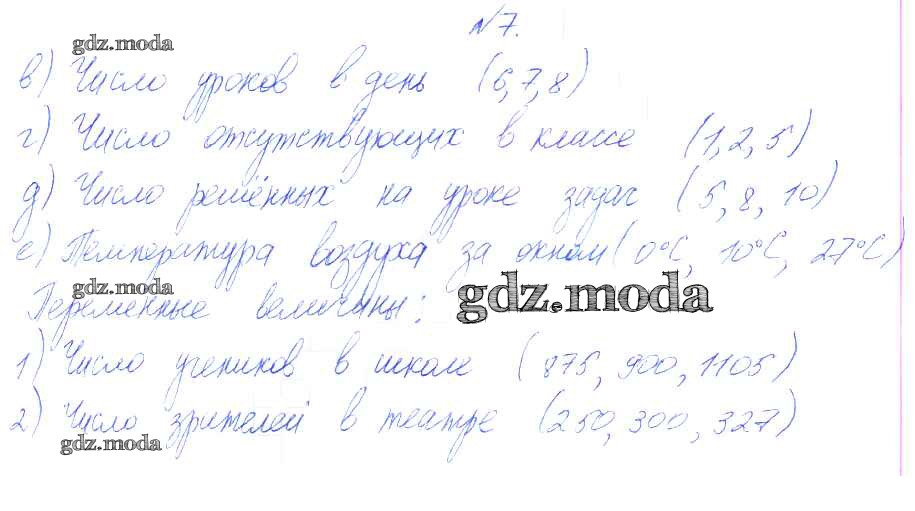 №7.
gdz.moda
в) Число уроков в день (6,7,8)
г) Число отсутствующих в классе (1,2,5)
д) Число решённых на уроке задач (5, 8, 10)
е) Температура воздуха за окном (0°С, 10°С, 27°С)
gdz.moda
Переменные величины:
gdz.moda
1) Число учеников в школе (875, 900, 1105)
2) Число зрителей в театре (250, 300, 327)
gdz.moda